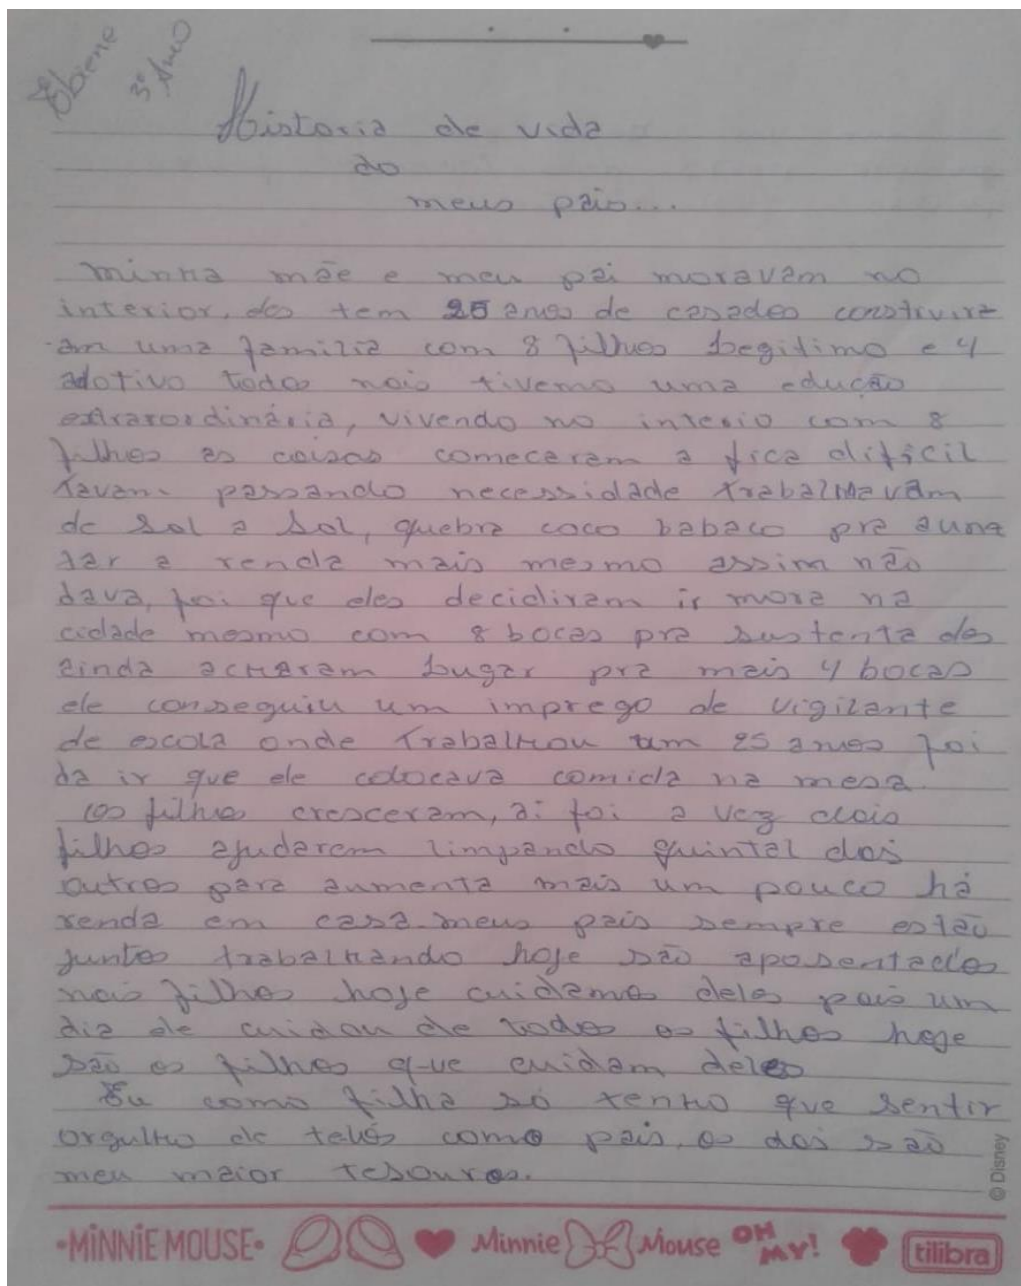 Ebiene
3º Ano
Historia de vida
do
meus pais...
minha mãe e meu pai moravam no
interior, eles tem 25 anos de casados construira
am uma familia com 8 filhos legitimo e 4
adotivo todos nois tivemo uma edução
extraordinária, vivendo no interio com 8
filhos as coisas comecaram a fica dificil
Tavam passando necessidade trabalhavam
de sol a sol, quebra coco babaco pra aume
tar a renda mais mesmo assim não
dava, foi que eles decidiram ir mora na
cidade mesmo com 8 bocas pra sustenta eles
ainda acharam lugar pra mais 4 bocas
ele conseguiu um imprego de vigilante
de escola onde trabalhou 25 anos foi
da ir que ele colocava comida na mesa.
os filhos cresceram, ai foi a vez dois
filhos ajudarem limpando quintal dos
outros para aumenta mais um pouco há
renda em casa. meus pais sempre estão
juntos trabalhando hoje são aposentados
nois filhos hoje cuidamos deles pois um
dia ele cuidou de todos os filhos hoje
são os filhos que cuidam deles
Eu como filha só tenho que sentir
orgulho de telos como pais, os dois são
meu maior tesouros.
© Disney
•MINNIE MOUSE• Minnie Mouse OH MY! tilibra